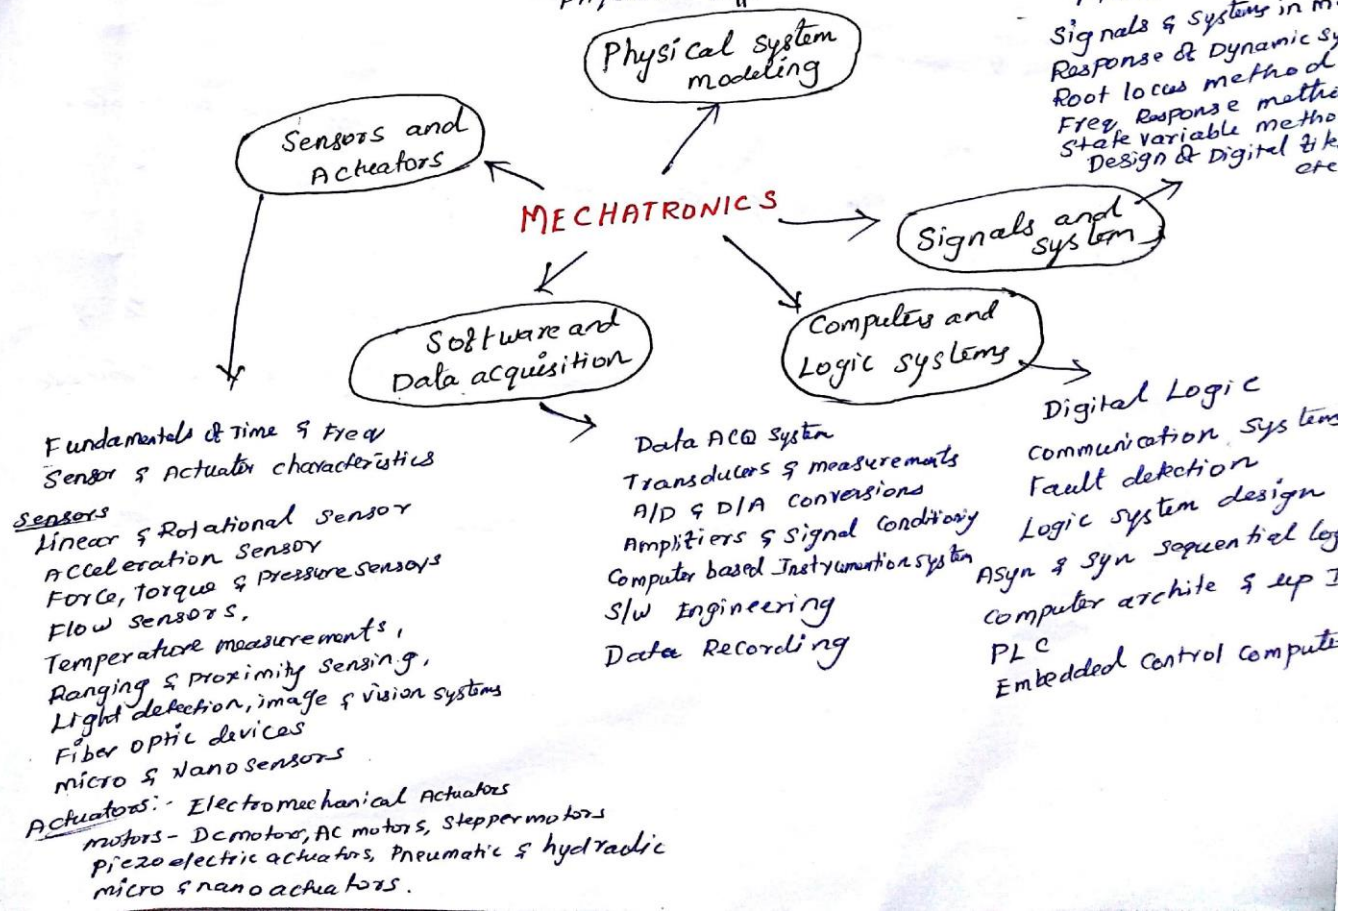 Physical system
modeling
Sensors and
Actuators
MECHATRONICS
Signals and
system
Software and
Data acquisition
Computers and
Logic systems
Signals & Systems in
Response of Dynamic
Root locus method
Freq Response
State variable
Design of Digital
etc
Fundamentals of Time & Freq
Sensor & Actuator characteristics
Sensors
Linear & Rotational Sensor
Acceleration Sensor
Force, Torque & Pressure sensors
Flow sensors,
Temperature measurements,
Ranging & Proximity Sensing,
Light detection, image & vision systems
Fiber optic devices
micro & Nano sensors
Actuators:- Electromechanical Actuators
motors - Dc motors, AC motors, Stepper motors
Piezo electric actuators, Pneumatic & hydraulic
micro & nano actuators.
Data ACQ System
Transducers & measurements
A/D & D/A conversions
Amplifiers & Signal Conditionig
Computer based Instrumention system
S/W Engineering
Data Recording
Digital Logic
Communication Systems
Fault detection
Logic system design
Asyn & Syn sequential
Computer archite & up
PLC
Embedded control